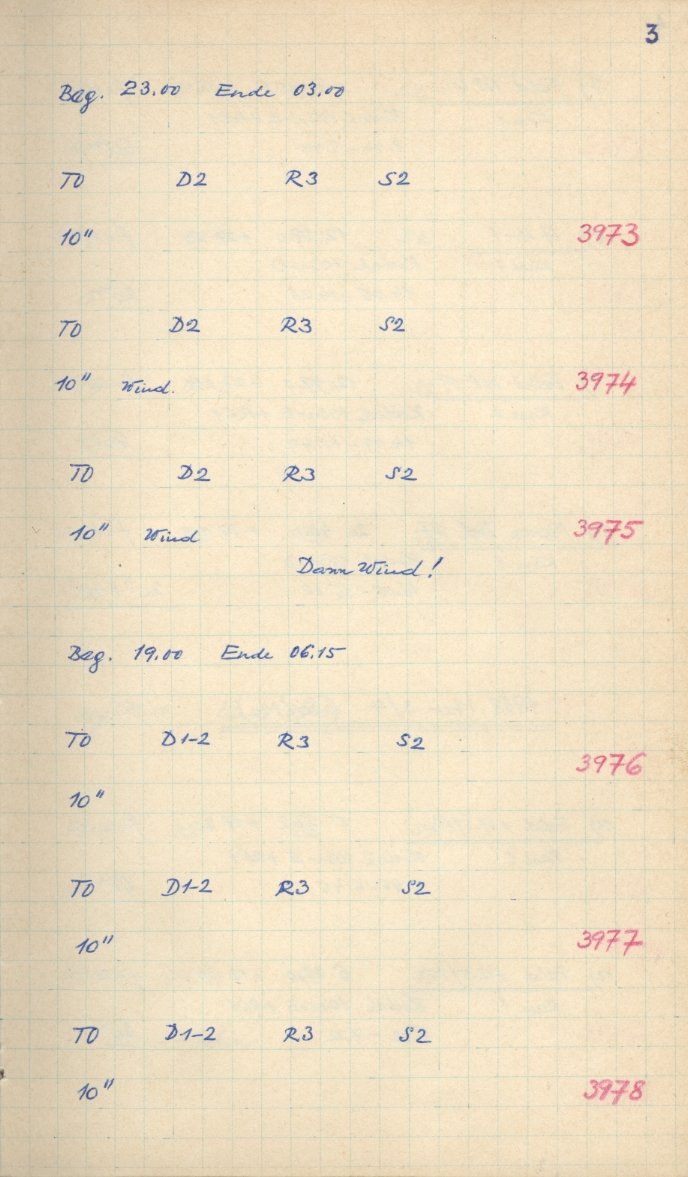 3
Beg. 23.00 Ende 03.00
T0 D2 R3 S2
10" 3973
T0 D2 R3 S2
10" Wind. 3974
T0 D2 R3 S2
10" Wind 3975
Dann Wind!
Beg. 19.00 Ende 06.15
T0 D1-2 R3 S2
3976
10"
T0 D1-2 R3 S2
10" 3977
T0 D1-2 R3 S2
10" 3978